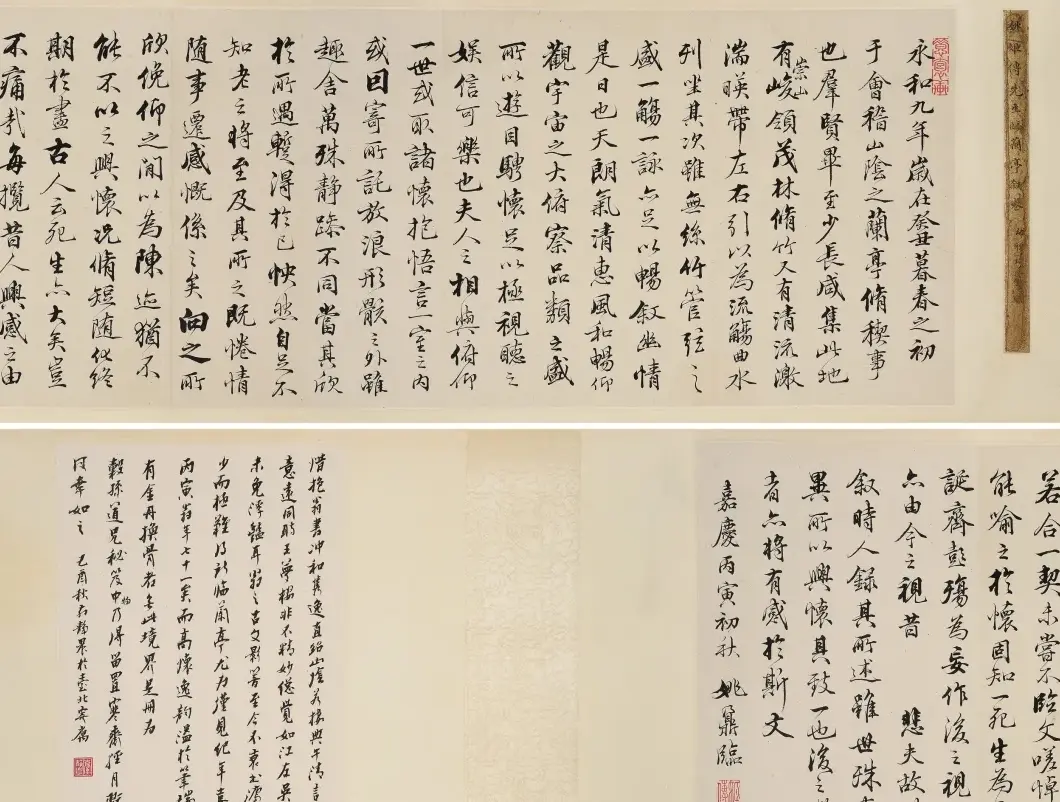 姚姬傳先生臨蘭亭敘
永和九年歲在癸丑暮春之初
于會稽山陰之蘭亭脩稧事
也羣賢畢至少長咸集此地
有崇山峻領茂林脩竹又有清流激
湍暎帶左右引以為流觴曲水
列坐其次雖無絲竹管弦之
盛一觴一詠亦足以暢敘幽情
是日也天朗氣清惠風和暢仰
觀宇宙之大俯察品類之盛
所以遊目騁懷足以極視聽之
娛信可樂也夫人之相與俯仰
一世或取諸懷抱悟言一室之內
或因寄所託放浪形骸之外雖
趣舍萬殊靜躁不同當其欣
於所遇蹔得於己怏然自足不
知老之將至及其所之既惓情
隨事遷感慨係之矣向之所
欣俛仰之閒以為陳迹猶不
能不以之興懷況脩短隨化終
期於盡古人云死生亦大矣豈
不痛哉每攬昔人興感之由
若合一契未嘗不臨文嗟悼
能喻之於懷固知一死生為
誕齊彭殤為妄作後之視
亦由今之視昔 悲夫故
敘時人錄其所述雖世殊
異所以興懷其致一也後之
者亦將有感於斯文
嘉慶丙寅初秋 姚鼐臨
惜抱翁書冲和雋逸直紹山陰典午清言
意遠同時王夢樓非不精妙總覺如江左吳
未免浮豔耳翁之古文影響至今不衰書
少而極難得此臨蘭亭尤為僅見紀年嘉
丙寅翁年七十一矣而高懷逸韵溢於筆端
有金丹換骨者無此境界是冊為
穀孫道兄秘笈中物乃得留置寒齋經月
何幸如之 己酉秋靜農於臺北